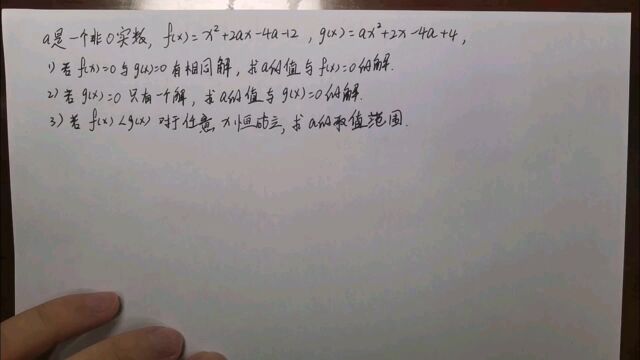 a是一个非0实数, f(x)=x²+2ax-4a-12, g(x)=ax²+2x-4a+4,
1) 若f(x)=0与g(x)=0有相同解, 求a的值与f(x)=0的解.
2) 若g(x)=0只有一个解, 求a的值与g(x)=0的解.
3) 若f(x)<g(x)对于任意x恒成立, 求a的取值范围.